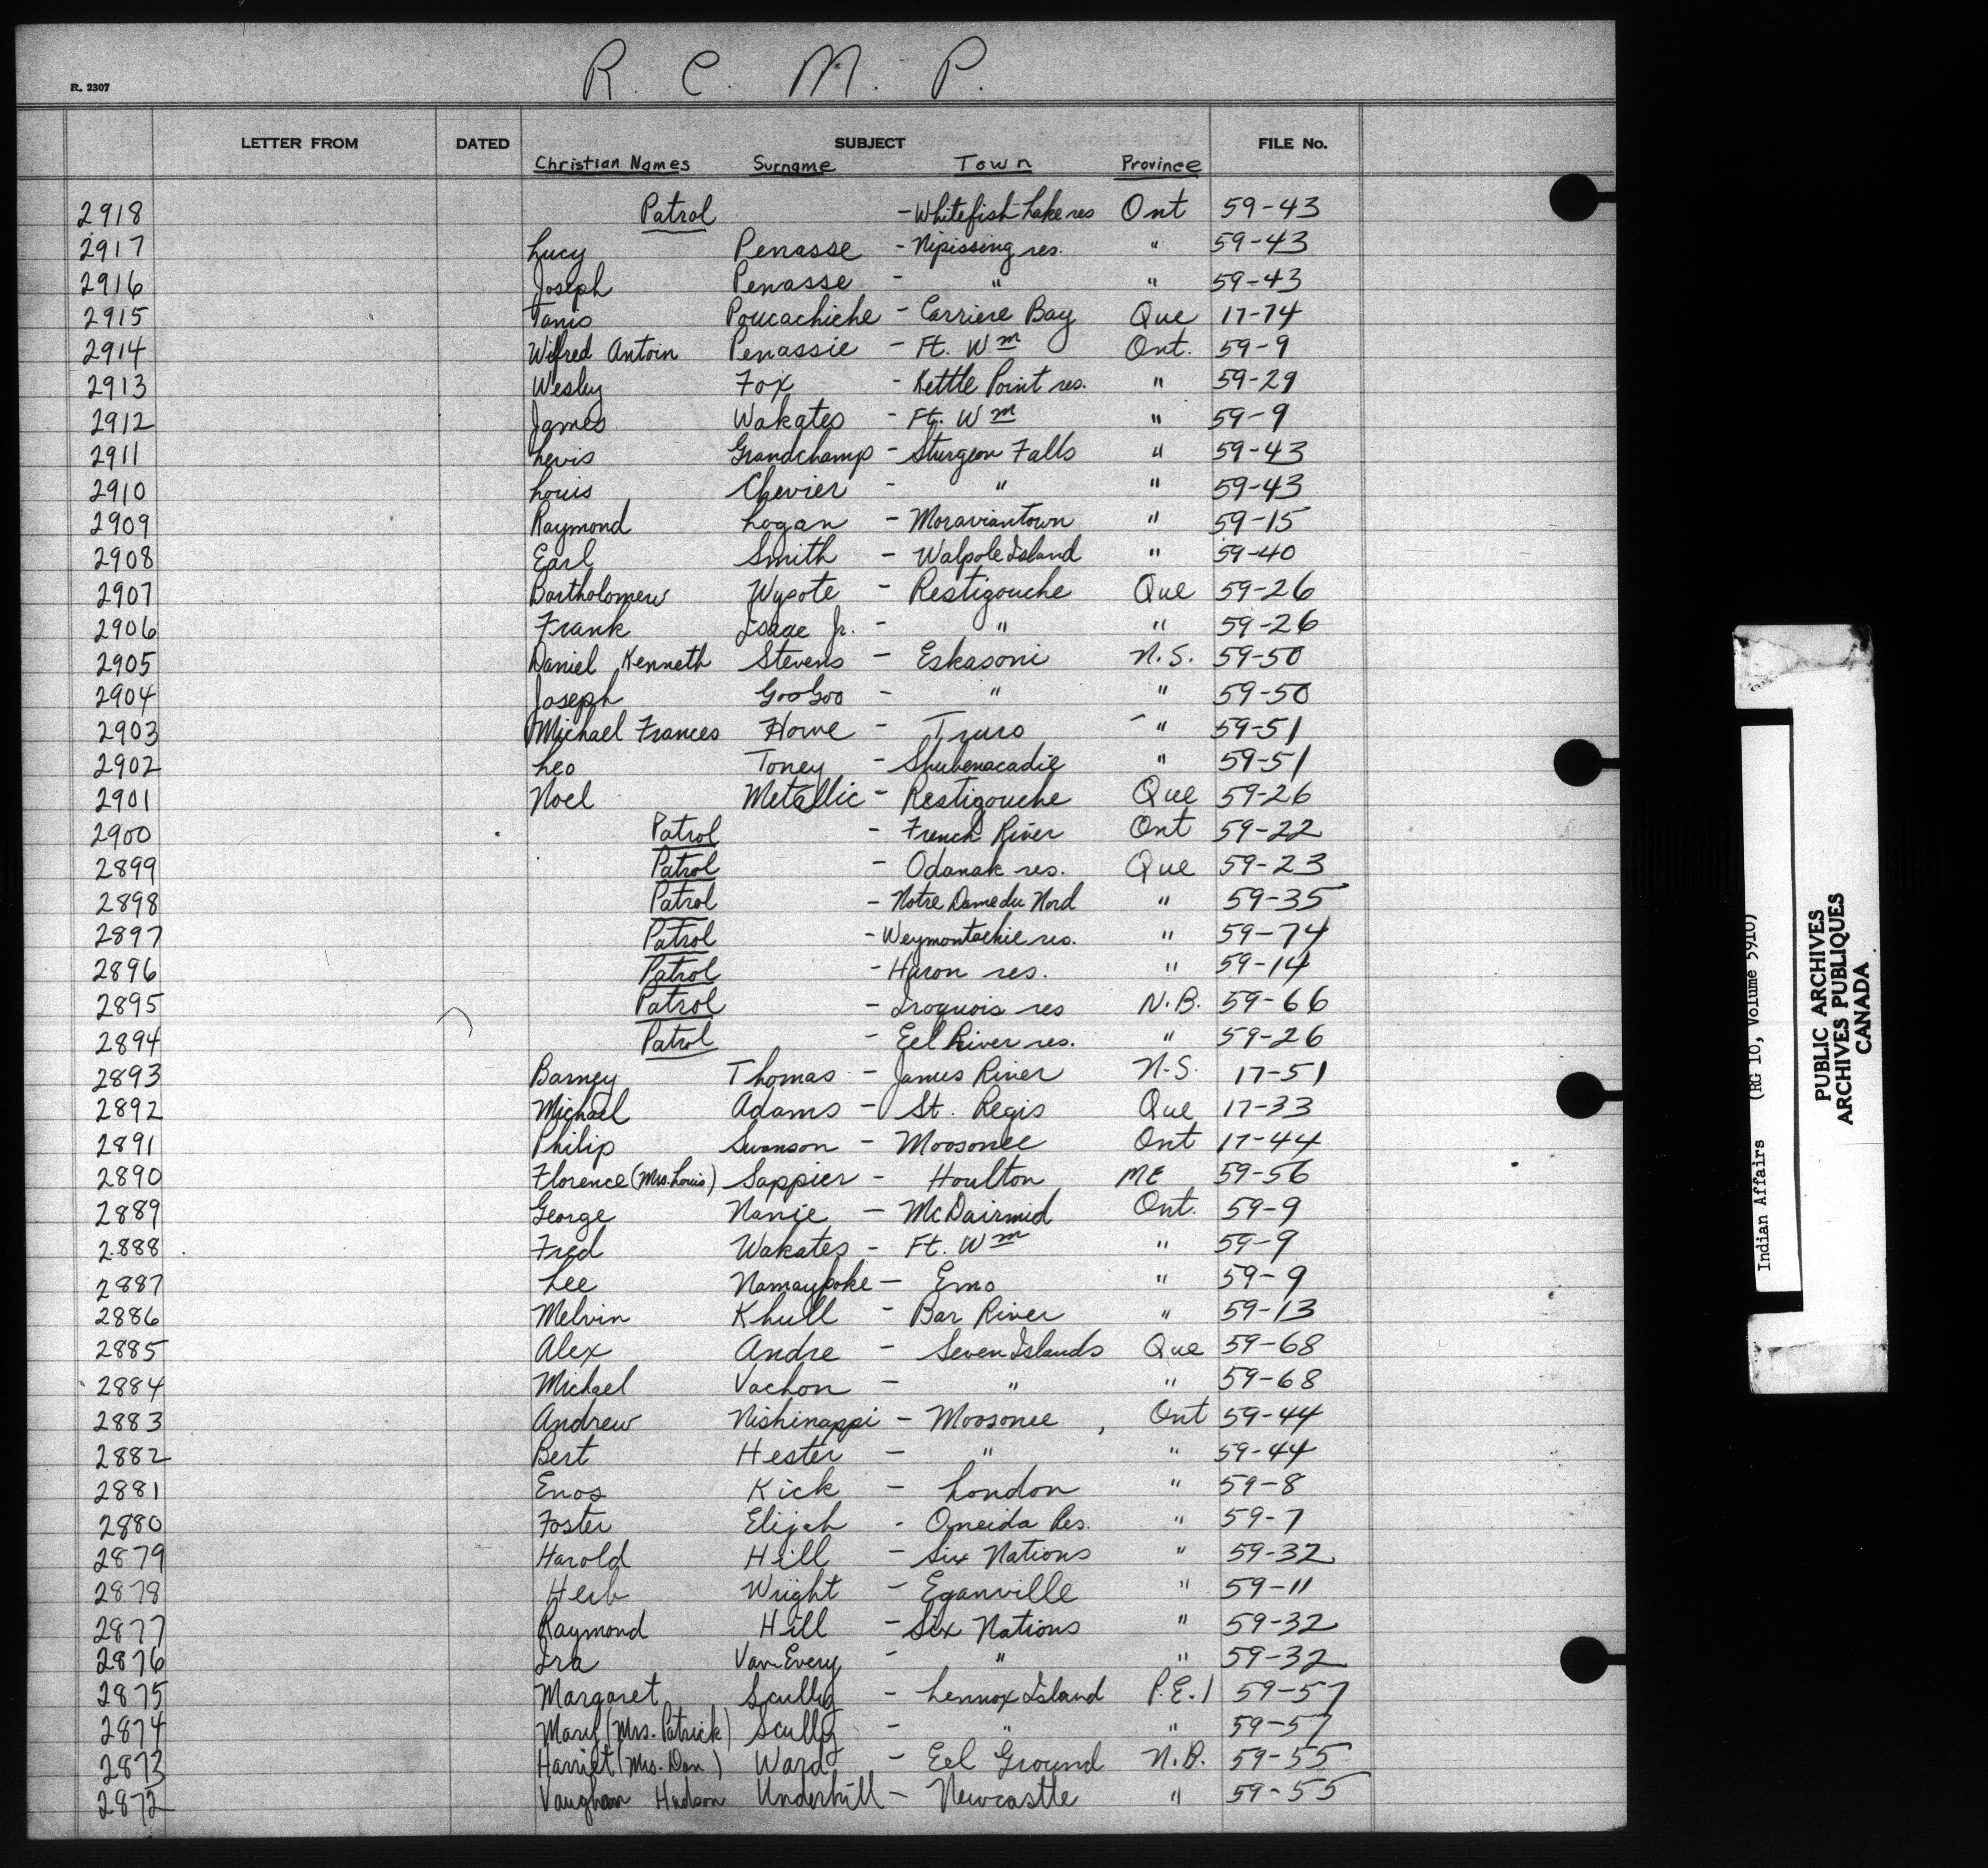 R. C. M. P.
R. 2307
LETTER FROM DATED SUBJECT FILE No.
Christian Names Surname Town Province
2918 Patrol - Whitefish Lake res Ont 59-43
2917 Lucy Penasse - Nipissing res. " 59-43
2916 Joseph Penasse - " " 59-43
2915 Tanis Poucachiche - Carriere Bay Que 17-74
2914 Wilfred Antoin Penassie - Ft. Wm Ont. 59-9
2913 Wesley Fox - Kettle Point res. " 59-29
2912 James Wakates - Ft. Wm " 59-9
2911 Levis Grandchamp - Sturgeon Falls " 59-43
2910 Louis Chevier - " " 59-43
2909 Raymond Logan - Moraviantown " 59-15
2908 Earl Smith - Walpole Island " 59-40
2907 Bartholomew Wysote - Restigouche Que 59-26
2906 Frank Isaac Jr. - " " 59-26
2905 Daniel Kenneth Stevens - Eskasoni N.S. 59-50
2904 Joseph GooGoo - " " 59-50
2903 Michael Frances Howe - Truro " 59-51
2902 Leo Toney - Shubenacadie " 59-51
2901 Noel Metallic - Restigouche Que 59-26
2900 Patrol - French River Ont 59-22
2899 Patrol - Odanak res. Que 59-23
2898 Patrol - Notre Dame du Nord " 59-35
2897 Patrol - Weymontachie res. " 59-74
2896 Patrol - Huron res. " 59-14
2895 Patrol - Iroquois res N.B. 59-66
2894 Patrol - Eel River res. " 59-26
2893 Barney Thomas - James River N.S. 17-51
2892 Michael Adams - St. Regis Que 17-33
2891 Philip Swanson - Moosonee Ont 17-44
2890 Florence (Mrs. Louis) Sappier - Houlton ME 59-56
2889 George Nanie - McDairmid Ont. 59-9
2888 Fred Wakates - Ft. Wm " 59-9
2887 Lee Namaypoke - Emo " 59-9
2886 Melvin Khull - Bar River " 59-13
2885 Alex Andre - Seven Islands Que 59-68
2884 Michael Vachon - " " 59-68
2883 Andrew Nishinappi - Moosonee, Ont 59-44
2882 Bert Hester - " " 59-44
2881 Enos Kick - London " 59-8
2880 Foster Elijah - Oneida Res. " 59-7
2879 Harold Hill - Six Nations " 59-32
2878 Herb Wright - Eganville " 59-11
2877 Raymond Hill - Six Nations " 59-32
2876 Ira Van-Every - " " 59-32
2875 Margaret Scully - Lennox Island P.E.I 59-57
2874 Mary (Mrs. Patrick) Scully - " " 59-57
2873 Harriet (Mrs. Dan) Ward - Eel Ground N.B. 59-55
2872 Vaughan Hudson Underhill - Newcastle " 59-55
Indian Affairs (RG 10, Volume 5910)
PUBLIC ARCHIVES
ARCHIVES PUBLIQUES
CANADA